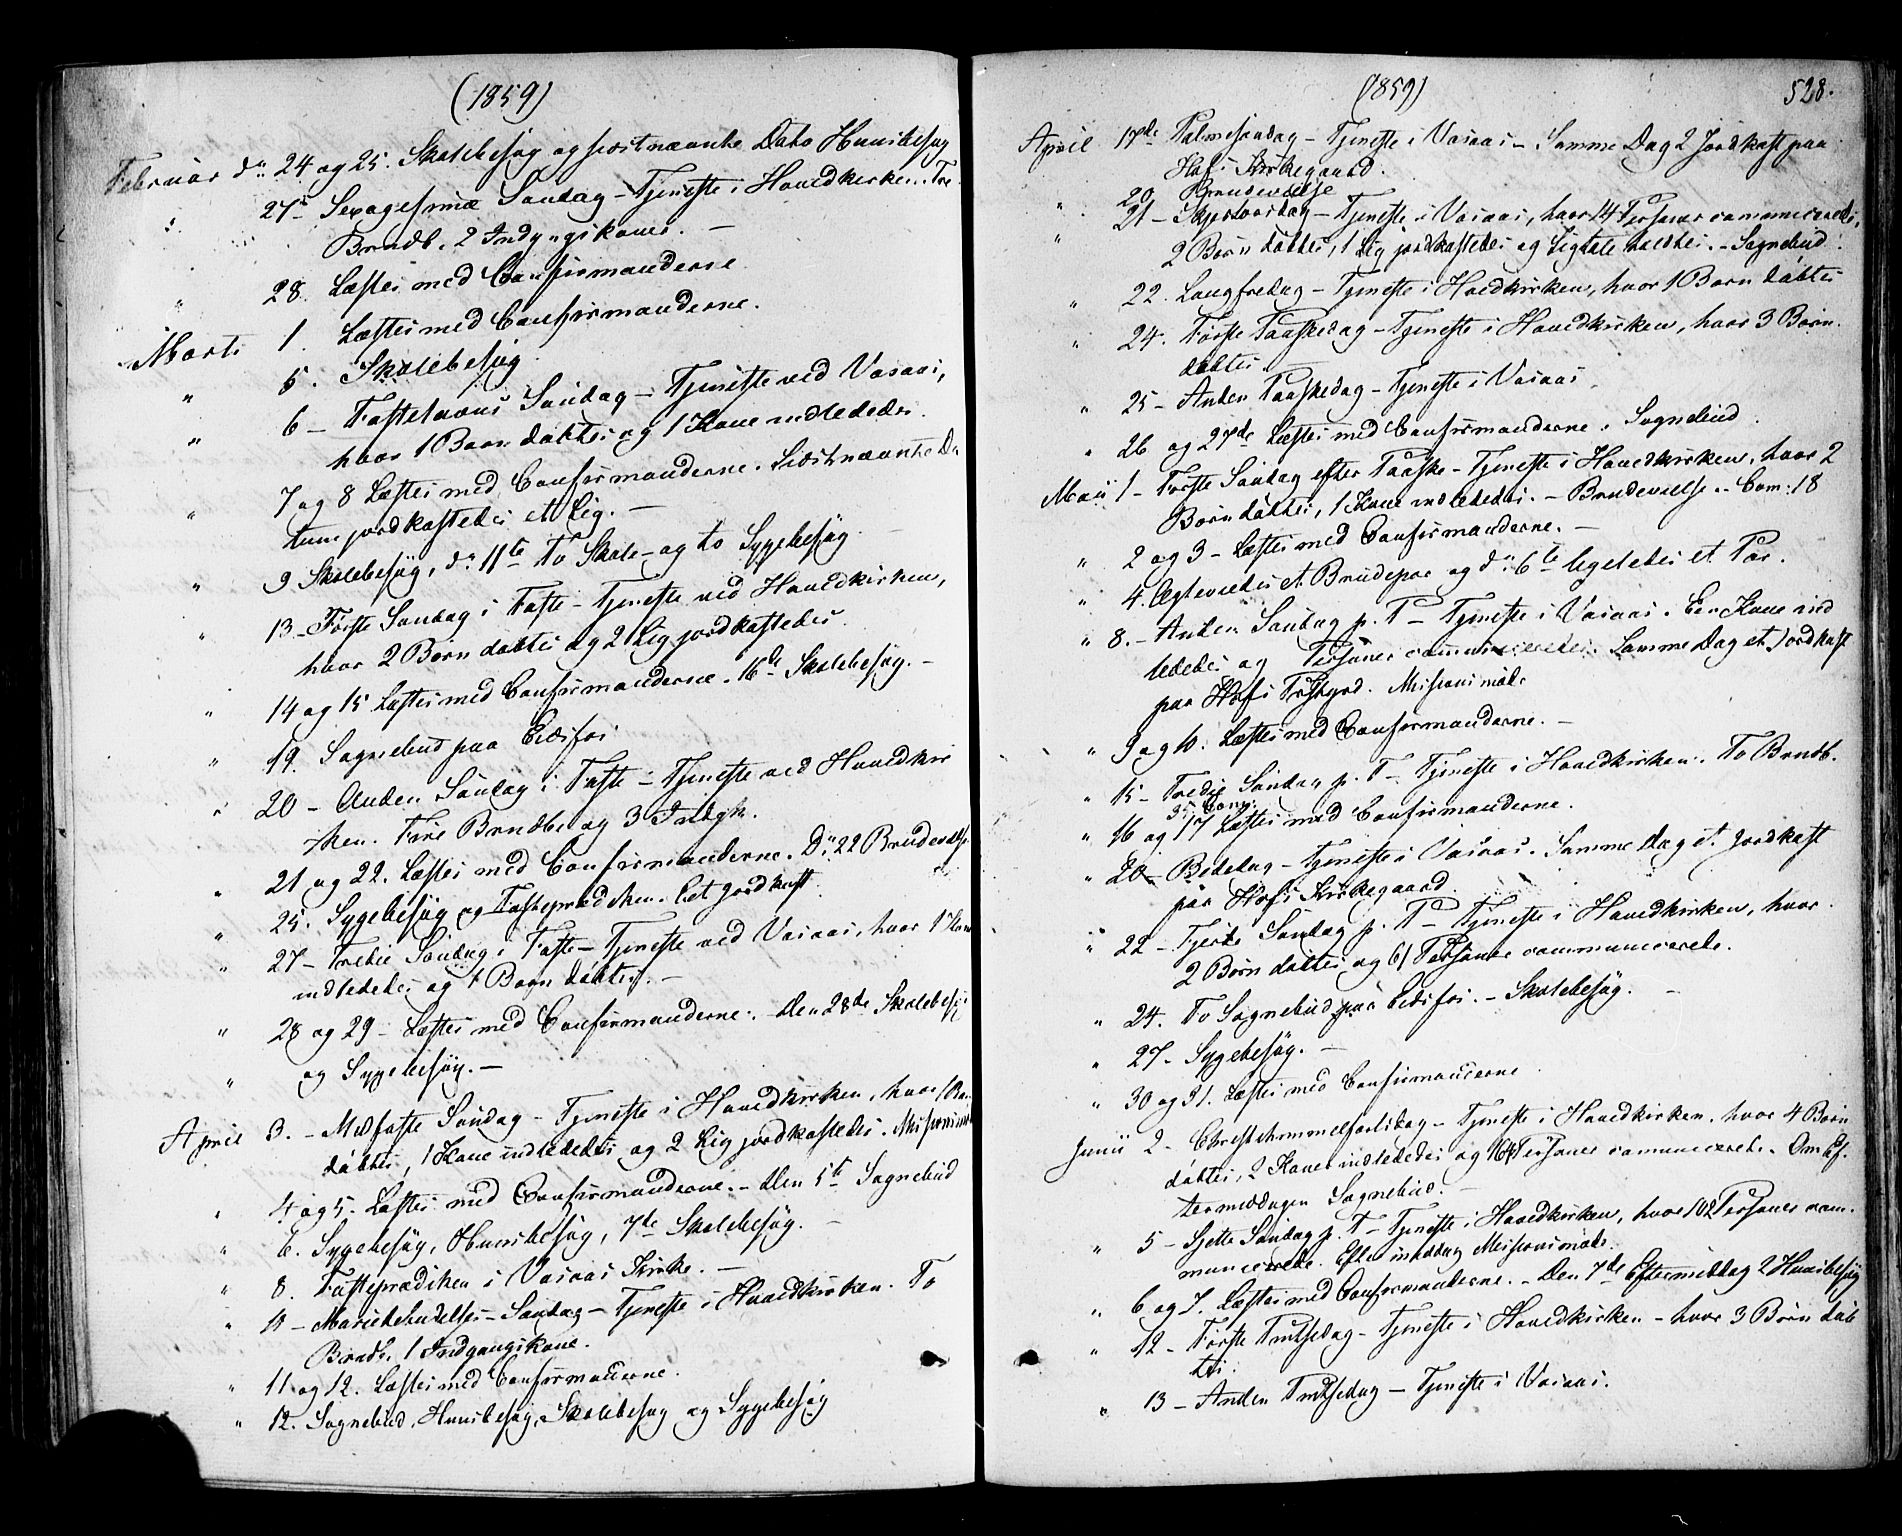 (1859)
Februar d: 24 og 25. Skolebesøg og sidstnævnte Dato Huusbesøg
" 27 Sexagesimæ Søndag – Tjeneste i Hovedkirken. Tre
Brudb. 2 Indgangskoner. –
" 28. Læstes med Confirmanderne
Marts 1. Læstes med Confirmanderne.
" 5. Skolebesøg.
" 6 – Fastelavns Søndag – Tjeneste ved Vasaas,
hvor 1 Barn døbtes og 1 Kone indlededes.
" 7 og 8 Læstes med Confirmanderne. Sidstnævnte Da
tum jordkastedes et Lig. –
" 9 Skolebesøg, d: 11te To Skole- og to Sygebesøg
" 13 – Første Søndag i Faste – Tjeneste ved Hovedkirken,
hvor 2 Børn døbtes og 2 Lig jordkastedes
" 14 og 15 Læstes med Confirmanderne. 16de Skolebesøg. –
" 19. Sognebud paa Eidsfos
" 20 – Anden Søndag i Faste – Tjeneste ved Hovedkir
ken. Fire Brudb. og 3 Indgk.
" 21 og 22. Læstes med Confirmanderne. D: 22 Brudevielse
" 25. Sygebesøg og Fasteprædiken. Eet Jordkast.
" 27 – Tredie Søndag i Faste – Tjeneste ved Vasaas, hvor 1 Kone
indlededes og 1 Barn døbtes. –
" 28 og 29 – Læstes med Confirmanderne. – Den 28de Skolebesøg
" og Sygebesøg. –
April 3. – Midfaste Søndag – Tjeneste i Hovedkirken, hvor 1 Barn
døbtes, 1 Kone indlededes og 2 Lig jordkastedes. Missionsmøde
" 4 og 5. Læstes med Confirmanderne. – Den 5te Sognebud
" 6. Sygebesøg, Huusbesøg, 7de Skolebesøg. –
" 8. Fasteprædiken i Vasaas Kirke. –
" 10 – Mariæ Bebudelses-Søndag – Tjeneste i Hovedkirken. To
Brudb. 1 Indgangskone.
" 11 og 12. Læstes med Confirmanderne.
" 12. Sognebud, Huusbesøg, Skolebesøg og Sygebesøg
(1859)
528.
April 17de Palmesøndag – Tjeneste i Vasaas – Samme Dag 2 Jordkast paa
Hofs Kirkegaard.
" 20 Brudevielse
" 21 – Skjertorsdag – Tjeneste i Vasaas, hvor 14 Personer communicerede,
2 Børn døbtes, 1 Lig jordkastedes og Ligtale holdtes. – Sognebud.
" 22. Langfredag – Tjeneste i Hovedkirken, hvor 1 Barn døbtes
" 24. Første Paaskedag – Tjeneste i Hovedkirken, hvor 3 Børn
døbtes
" 25 – Anden Paaskedag – Tjeneste i Vasaas
" 26 og 27de Læstes med Confirmanderne. Sognebud.
Maii 1 – Første Søndag efter Paaske – Tjeneste i Hovedkirken, hvor 2
Børn døbtes, 1 Kone indlededes. – Brudevielse. – Com: 18
" 2 og 3 – Læstes med Confirmanderne. –
" 4. Ægteviedes et Brudepar og d: 6te ligeledes et Par.
" 8. – Anden Søndag p. P – Tjeneste i Vasaas. Een Kone ind
lededes og Personer communicerede. Samme Dag et Jordkast
paa Hofs . Missionsmøde
" 9 og 10. Læstes med Confirmanderne. –
" 15 – Tredie Søndag p. P – Tjeneste i Hovedkirken. To Brudb.
" 16 og 17 Læstes med Confirmanderne.
" 20 – Bededag – Tjeneste i Vasaas. Samme Dag et Jordkast
paa Hofs Kirkegaard
" 22 – Fjerde Søndag p. P – Tjeneste i Hovedkirken, hvor
2 Børn døbtes og 61 Personer communicerede.
" 24. To Sognebud paa Eidsfos. – Skolebesøg. –
" 27 – Sygebesøg. –
" 30 og 31. Læstes med Confirmanderne
Junii 2 – Christi Himmelfartsdag – Tjeneste i Hovedkirken, hvor 4 Børn
døbtes, 2 Koner indlededes og 164 Personer communicerede. Om Ef-
termiddagen Sognebud. –
" 5 – Sjette Søndag p. P – Tjeneste i Hovedkirken, hvor 102 Personer com-
municerede. Eftermiddag Missionsmøde.
" 6 og 7. Læstes med Confirmanderne. – Den 7de Eftermiddag 2 Huusbesøg
" 12 – Første Pintsedag – Tjeneste i Hovedkirken – hvor 3 Børn døb
tes.
" 13 – Anden Pintsedag – Tjeneste i Vasaas.